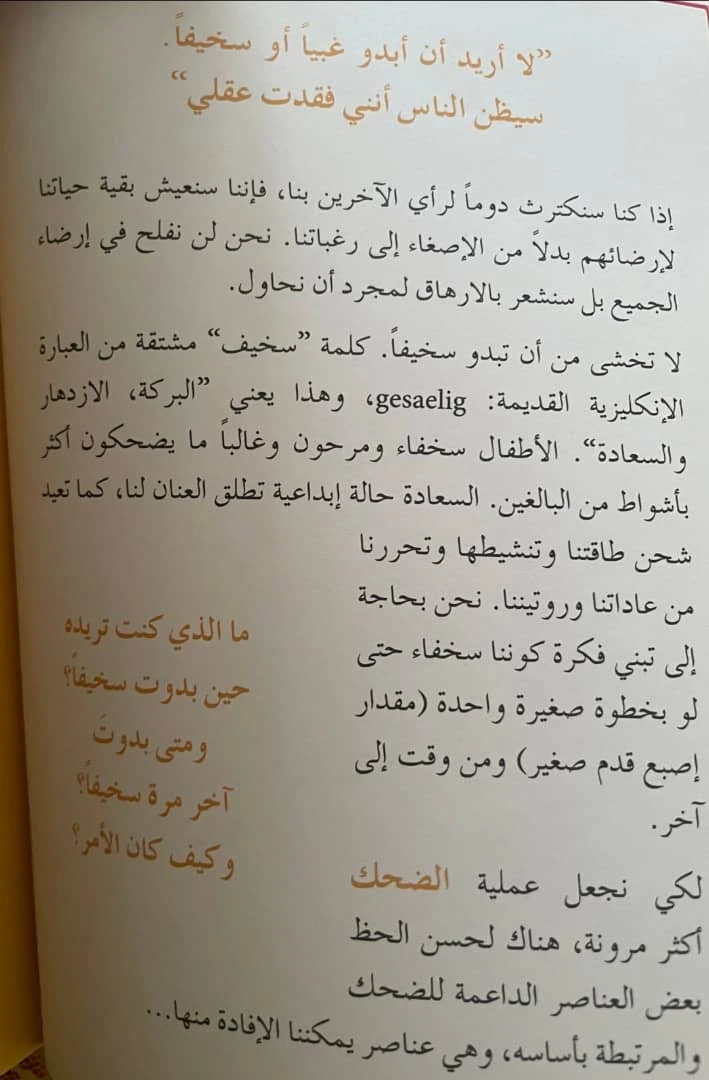 ”لا أريد أن أبدو غبياً أو سخيفاً.
سيظن الناس أنني فقدت عقلي“
إذا كنا سنكترث دوماً لرأي الآخرين بنا، فإننا سنعيش بقية حياتنا
لإرضائهم بدلاً من الإصغاء إلى رغباتنا. نحن لن نفلح في إرضاء
الجميع بل سنشعر بالارهاق لمجرد أن نحاول.
لا تخشى من أن تبدو سخيفاً. كلمة ”سخيف“ مشتقة من العبارة
الإنكليزية القديمة: gesaelig، وهذا يعني ”البركة، الازدهار
والسعادة“. الأطفال سخفاء ومرحون وغالباً ما يضحكون أكثر
بأشواط من البالغين. السعادة حالة إبداعية تطلق العنان لنا، كما تعيد
شحن طاقتنا وتنشيطها وتحررنا
من عاداتنا وروتيننا. نحن بحاجة
إلى تبني فكرة كوننا سخفاء حتى
لو بخطوة صغيرة واحدة (مقدار
إصبع قدم صغير) ومن وقت إلى
آخر.
ما الذي كنت تريده
حين بدوت سخيفاً؟
ومتى بدوتَ
آخر مرة سخيفاً؟
وكيف كان الأمر؟
لكي نجعل عملية الضحك
أكثر مرونة، هناك لحسن الحظ
بعض العناصر الداعمة للضحك
والمرتبطة بأساسه، وهي عناصر يمكننا الإفادة منها...